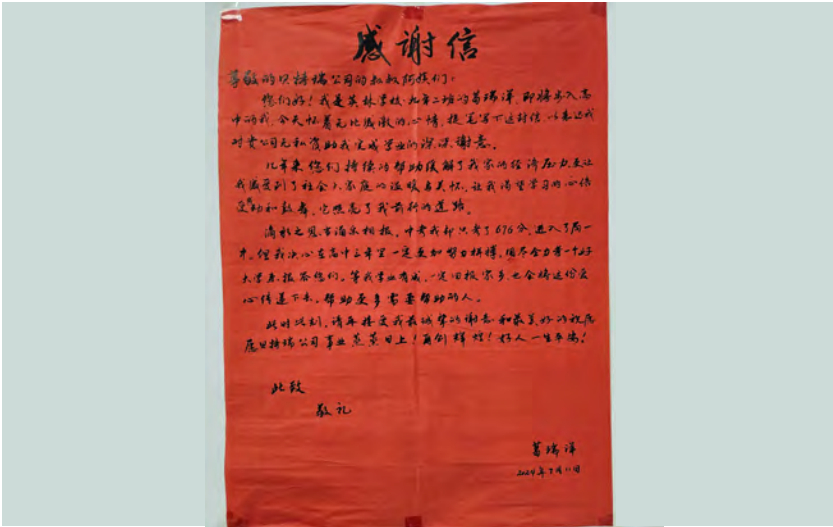 感谢信
尊敬的贝特瑞公司的叔叔阿姨们:
您们好!我是英林学校九年二班的葛瑞洋,即将步入高
中的我,今天怀着无比感激的心情,提笔写下这封信,以表达我
对贵公司无私资助我完成学业的深深谢意。
几年来您们持续的帮助缓解了我家的经济压力,更让
我感受到了社会大家庭的温暖与关怀,让我渴望学习的心倍
受感动和鼓舞,它照亮了我前行的道路。
滴水之恩,当涌泉相报,中考我却只考了676分,进入了两一
中,但我决心在高中三年里一定更加努力拼搏,用尽全力考一个好
大学来报答您们。等我学业有成,一定回报家乡,也会将这份爱
心传递下去,帮助更多需要帮助的人。
此时此刻,请再接受我最诚挚的谢意和最美好的祝愿
愿贝特瑞公司事业蒸蒸日上!再创辉煌!好人一生平安!
此致
敬礼
葛瑞洋
2024年7月11日